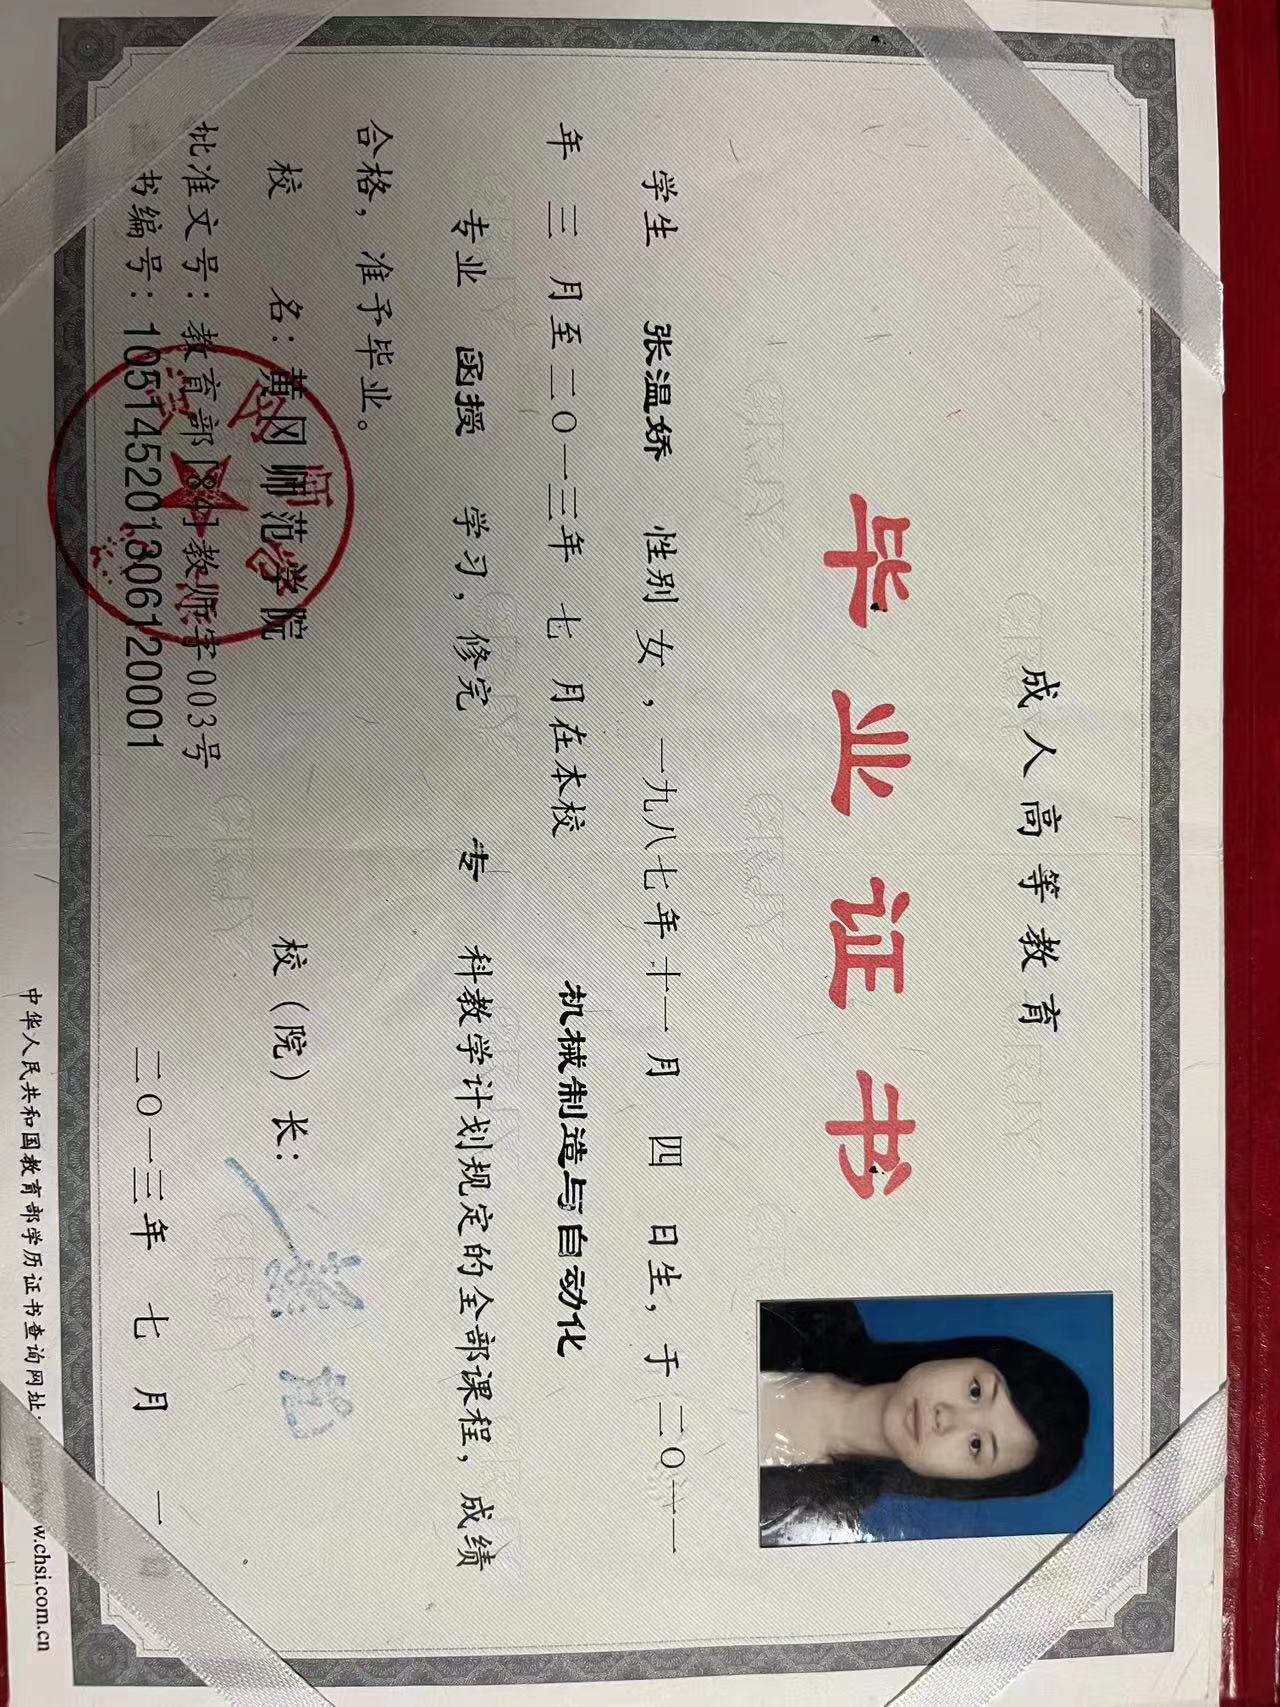 成人高等教育
毕业证书
学生 张温娇 性别 女，一九八七年十一月 四 日生，于二〇一一
年 三 月至二〇一三年 七 月在本校 机械制造与自动化
专业 函授 学习，修完 专 科教学计划规定的全部课程，成绩
合格，准予毕业。
校 名：黄冈师范学院 校（院）长：
批准文号：教育部[84]教师字003号
书编号：105145201306120001 二〇一三年 七 月 一
中华人民共和国教育部学历证书查询网址: w.chsi.com.cn